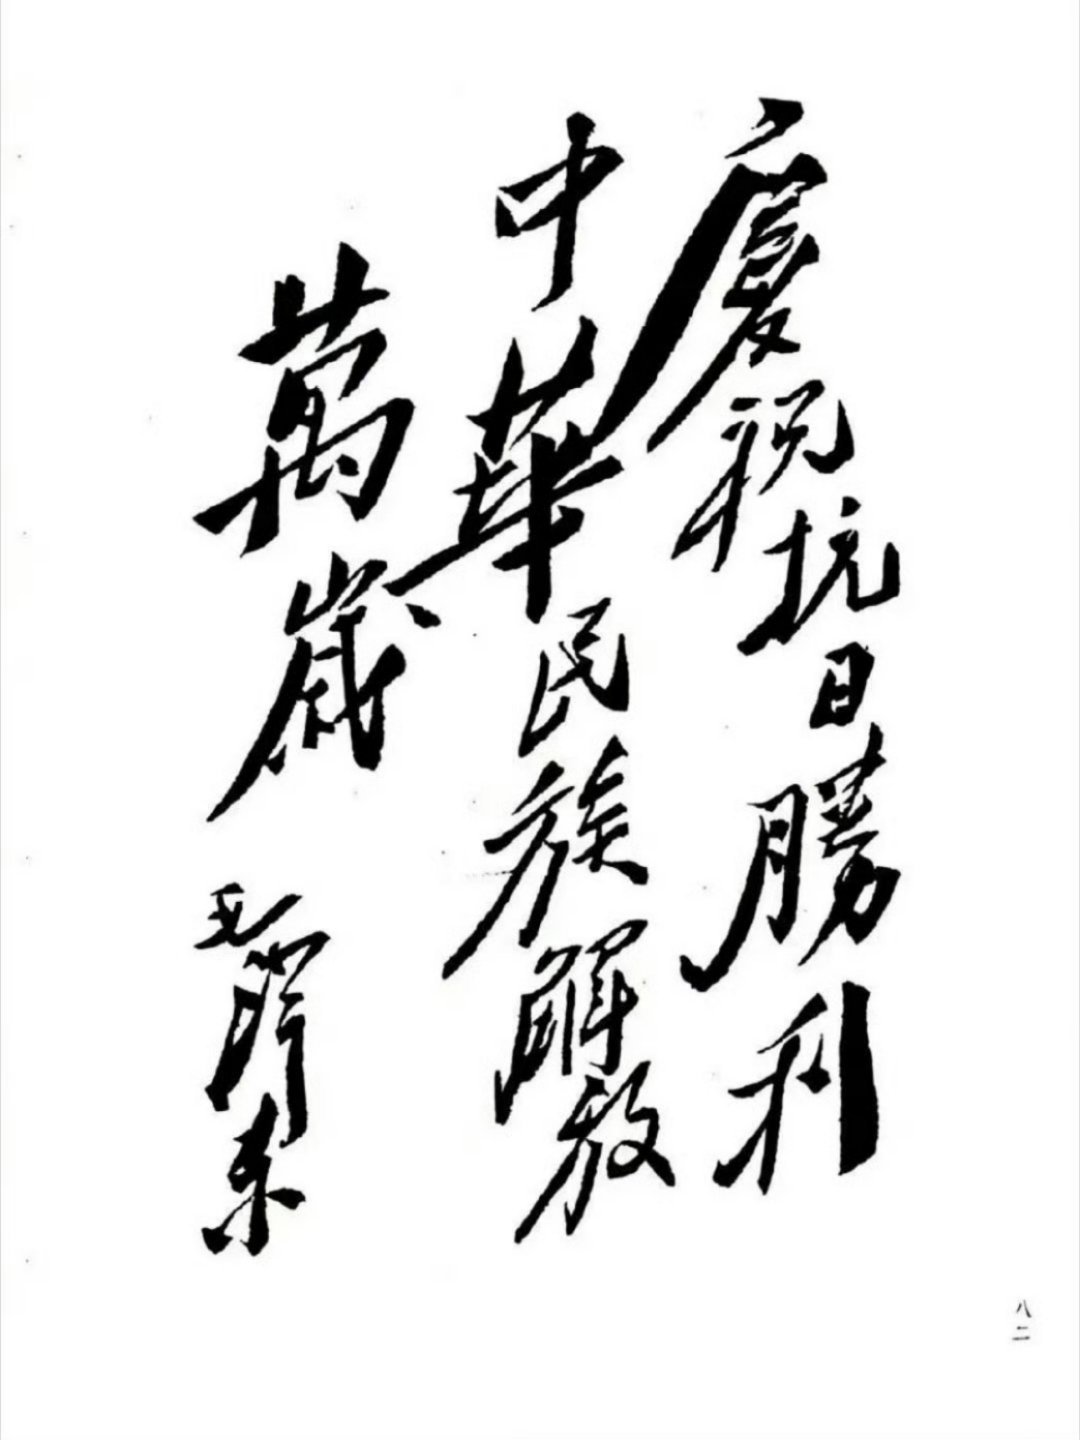 慶祝抗日勝利
中華民族解放
萬歲
毛澤东
八二